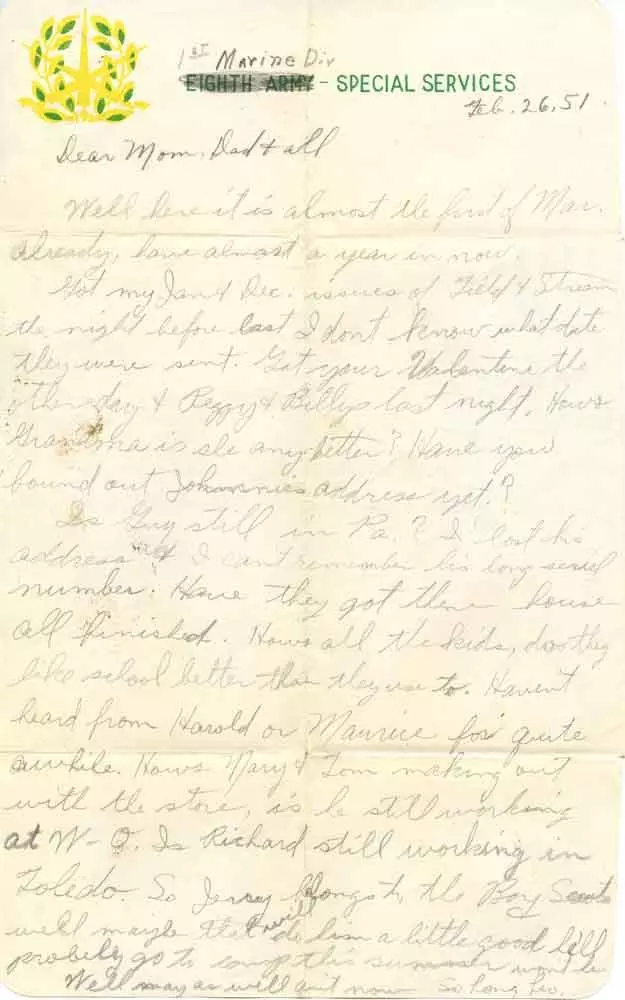 1st Marine Div
EIGHTH ARMY - SPECIAL SERVICES
Feb. 26, 51.
Dear Mom, Dad & all
Well here it is almost the first of Mar.
already, have almost a year in now.
Got my Jan & Dec. issues of Field & Stream
the night before last I dont know what date
they were sent. Got your Valentine the
other day & Peggy & Billys last night. Hows
Grandma is she any better? Have you
found out Johnnies address yet?
Is Guy still in Pa.? I lost his
address & I cant remember his long serial
number. Have they got there house
all finished. Hows all the kids, do they
like school better than they use to. Havent
heard from Harold or Maurice for quite
awhile. Hows Mary & Tom making out
with the store, is he still working
at W-O. Is Richard still working in
Toledo. So Jerry belongs to the Boy Scouts
well maybe that will do him a little good he'll
probely go to camp this summer wont he
Well may as well quit now So Long